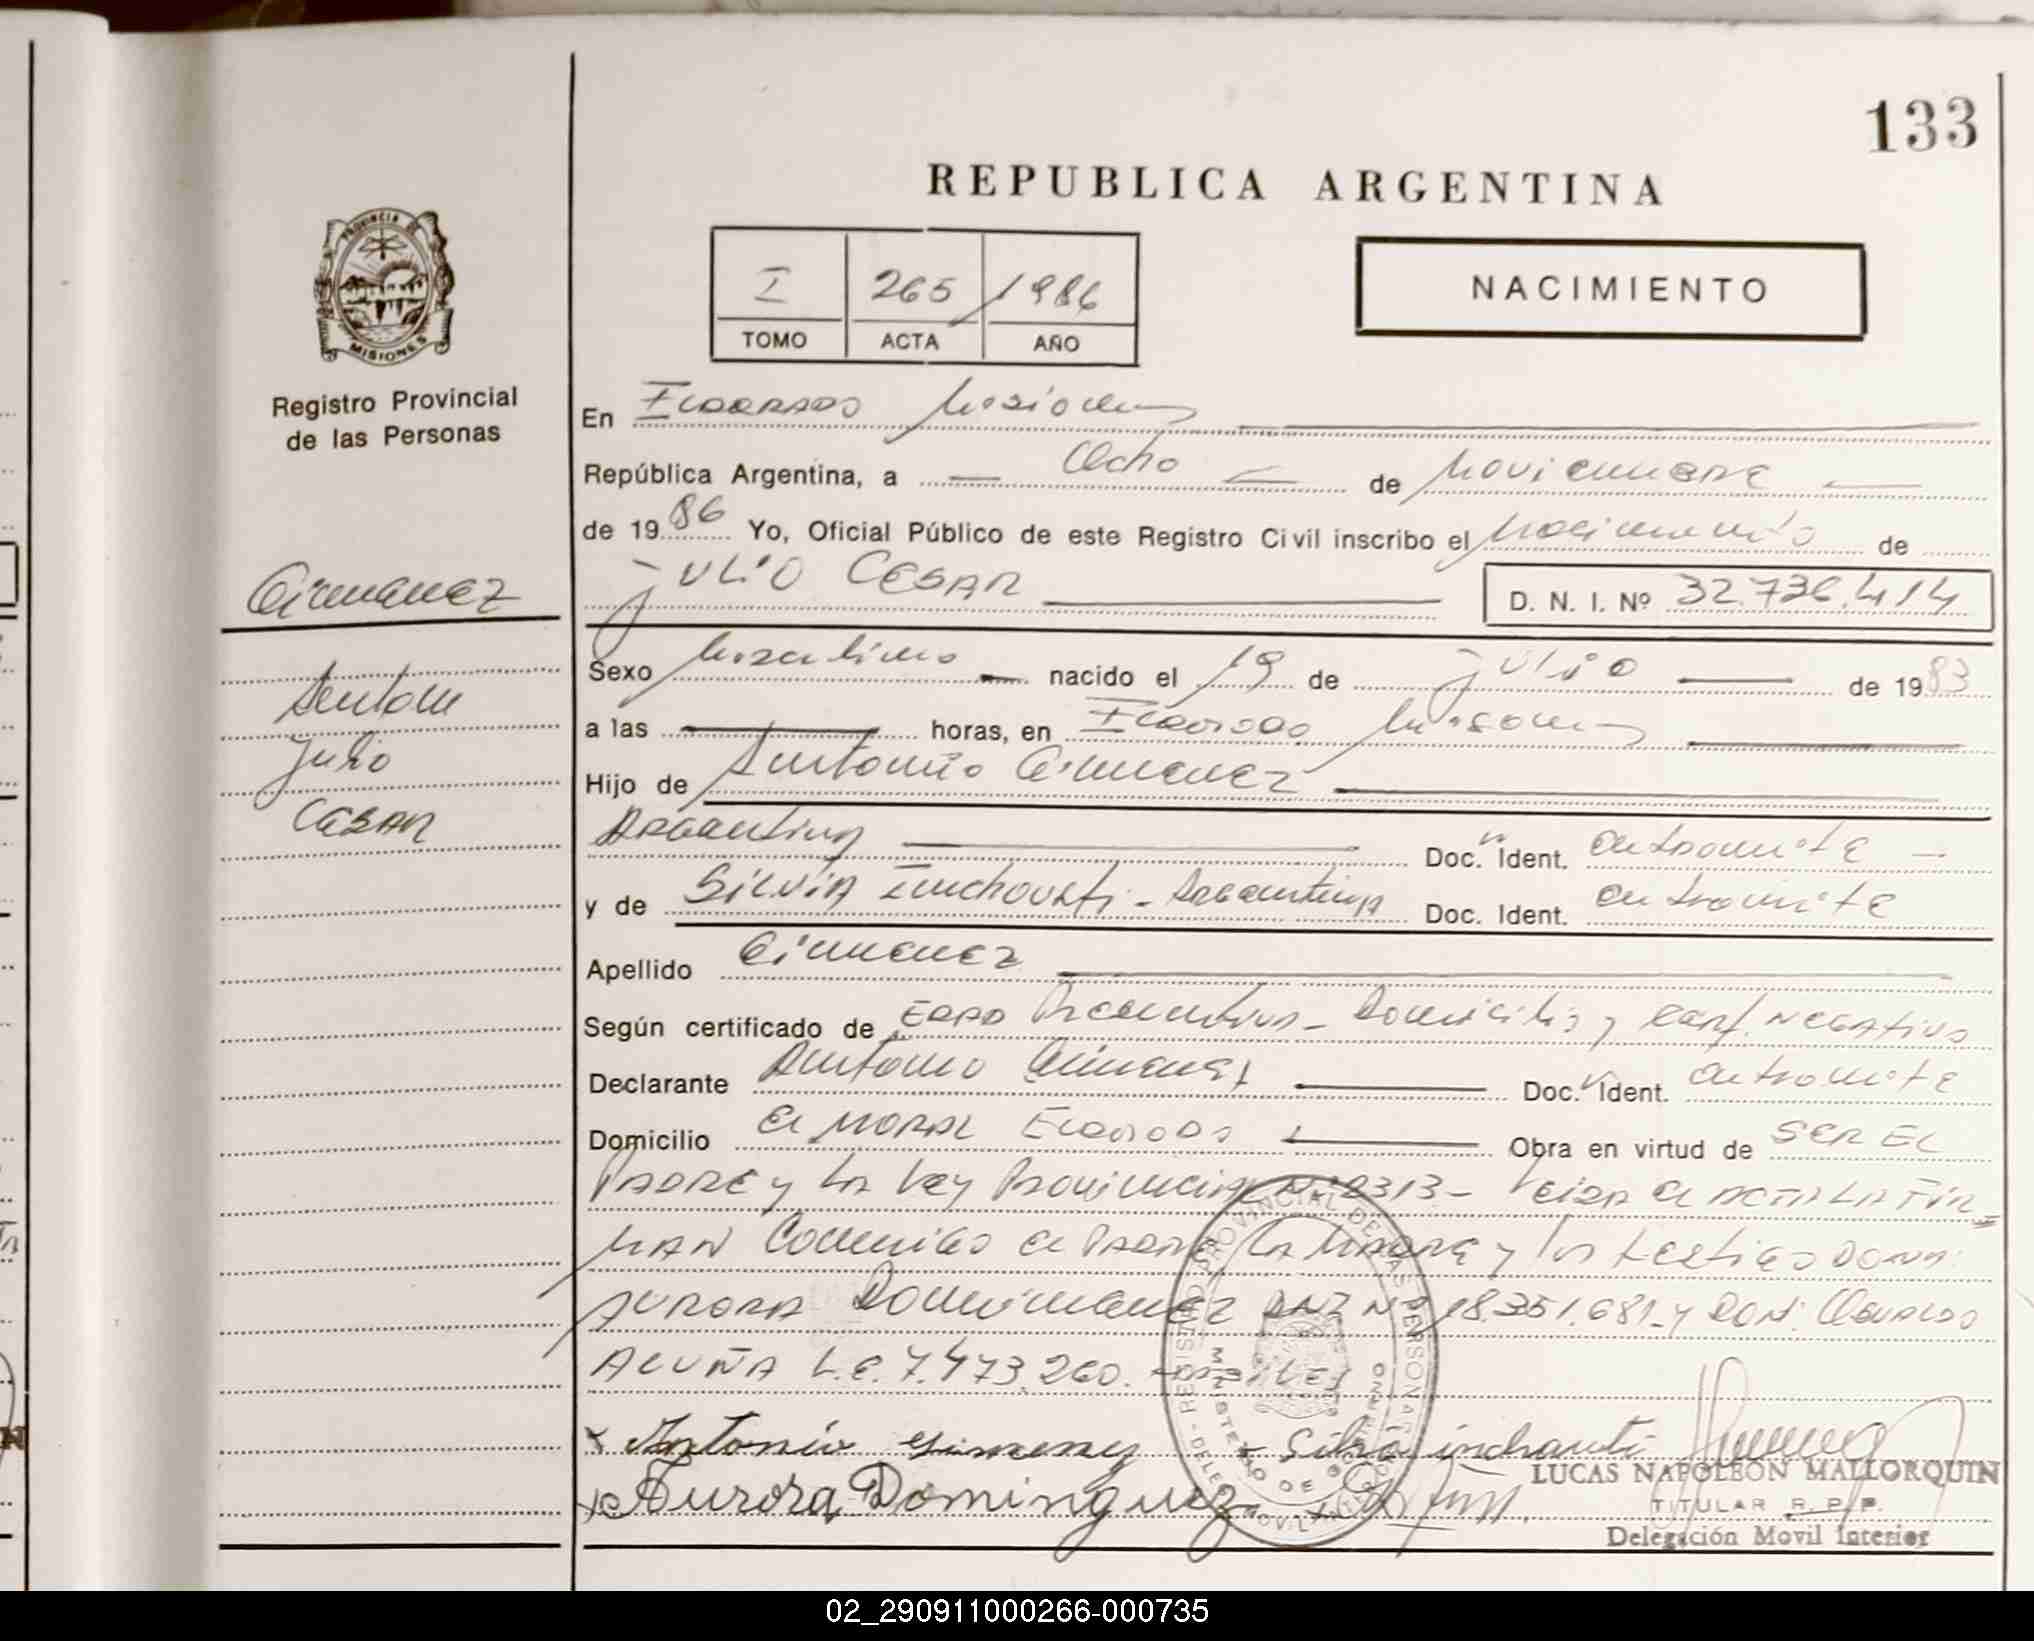 133
REPUBLICA ARGENTINA
PROVINCIA DE
MISIONES
Registro Provincial
de las Personas
I 265 1986
TOMO ACTA AÑO
NACIMIENTO
En Eldorado Misiones
República Argentina, a Ocho de Noviembre
de 19 86 Yo, Oficial Público de este Registro Civil inscribo el Nacimiento de
JULIO CESAR D. N. I. Nº 32.736.414
Gimenez
Antonio
Julio
Cesar
Sexo Masculino nacido el 19 de Julio de 1983
a las horas, en Eldorado Misiones
Hijo de Antonio Gimenez
Argentino Doc. Ident. en tramite
y de Silvia - Argentina Doc. Ident. en tramite
Apellido Gimenez
Según certificado de Edad Domicilio y cert. Negativo
Declarante Antonio Gimenez Doc. Ident. en tramite
Domicilio El Moral Eldorado Obra en virtud de SER EL
PADRE y La Ley Provincial Nº 2313 - Leida el Acta La Fir=
man Conmigo el Padre La Madre y los testigos Dona:
Aurora Dominguez DNI Nº 18.351.681 - y DON: Osvaldo
ACUÑA L.E. 7.473.260.
x Antonio Gimenez x Silvia inchauti
x Aurora Dominguez
REGISTRO PROVINCIAL DE LAS PERSONAS
MINISTERIO DE GOBIERNO
LUCAS NAPOLEON MALLORQUIN
TITULAR R. P. P.
Delegación Movil Interior
02_290911000266-000735